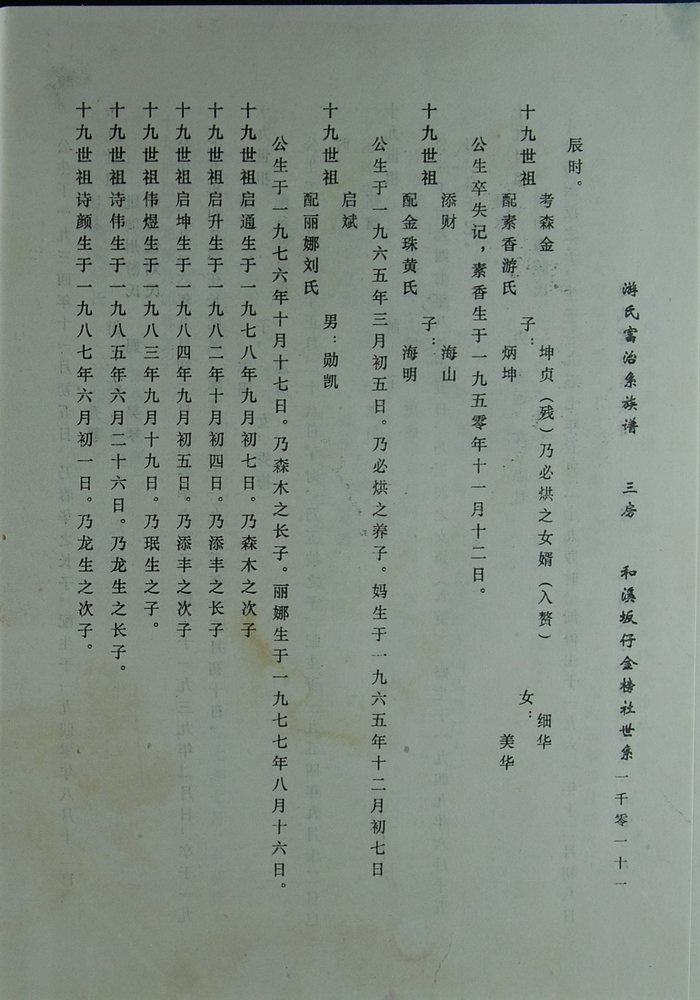 游氏富治系族谱 三房 和溪坂仔金榜社世系 一千零一十一
辰时。
十九世祖 考森金 配素香游氏 子：坤贞（残）乃必烘之女婿（入赘） 炳坤 女：细华 美华
公生卒失记，素香生于一九五零年十一月十二日。
十九世祖 添财 配金珠黄氏 子：海山 海明
公生于一九六五年三月初五日。乃必烘之养子。妈生于一九六五年十二月初七日
十九世祖 启斌 配丽娜刘氏 男：勋凯
公生于一九七六年十月十七日。乃森木之长子。丽娜生于一九七七年八月十六日。
十九世祖启通生于一九七八年九月初七日。乃森木之次子
十九世祖启升生于一九八二年十月初四日。乃添丰之长子
十九世祖启坤生于一九八四年九月初五日。乃添丰之次子
十九世祖伟煜生于一九八三年九月十九日。乃珉生之子。
十九世祖诗伟生于一九八五年六月二十六日。乃龙生之长子。
十九世祖诗颜生于一九八七年六月初一日。乃龙生之次子。